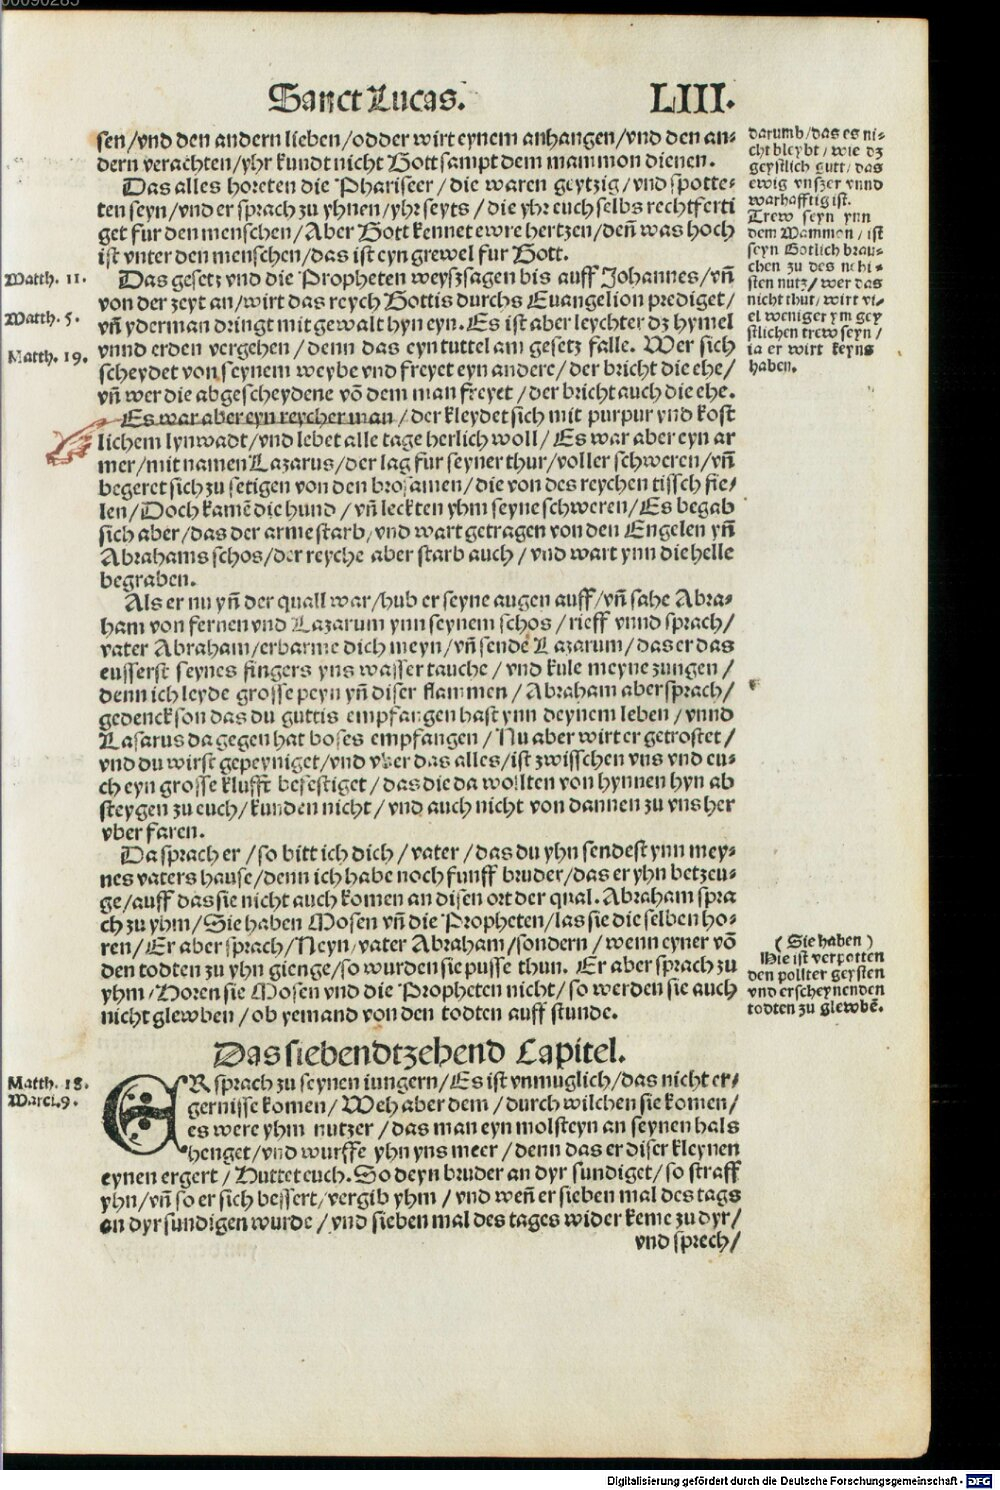 00090285
Sanct Lucas. LIII.
sen/vnd den andern lieben/odder wirt eynem anhangen/vnd den an-
dern verachten/yhr kundt nicht Gott sampt dem mammon dienen.
Das alles horeten die Phariseer/die waren geytzig/vnd spotte-
ten seyn/vnd er sprach zu yhnen/yhr seyts/die yhr euch selbs rechtferti
get fur den menschen/Aber Gott kennet ewre hertzen/den̄ was hoch
ist vnter den menschen/das ist eyn grewel fur Gott.
Das gesetz vnd die Propheten weyszsagen bis auff Johannes/vn̄
von der zeyt an/wirt das reych Gottis durchs Euangelion prediget/
vn̄ yderman dringt mit gewalt hyn eyn. Es ist aber leychter dz hymel
vnnd erden vergehen/denn das eyn tuttel am gesetz falle. Wer sich
scheydet von seynem weybe vnd freyet eyn andere/der bricht die ehe/
vn̄ wer die abgescheydene vō dem man freyet/der bricht auch die ehe.
Es war aber eyn reycher man/der kleydet sich mit purpur vnd kost
lichem lynwadt/vnd lebet alle tage herlich woll/Es war aber eyn ar
mer/mit namen Lazarus/der lag fur seyner thur/voller schweren/vn̄
begeret sich zu setigen von den brosamen/die von des reychen tissch fie-
len/Doch kamē die hund/vn̄ leckten yhm seyne schweren/Es begab
sich aber/das der arme starb/vnd wart getragen von den Engelen yn̄
Abrahams schos/der reyche aber starb auch/vnd wart ynn die helle
begraben.
Als er nu yn̄ der quall war/hub er seyne augen auff/vn̄ sahe Abra-
ham von fernen vnd Lazarum ynn seynem schos/rieff vnnd sprach/
vater Abraham/erbarme dich meyn/vn̄ sende Lazarum/das er das
eusserst seynes fingers yns wasser tauche/vnd kule meyne zungen/
denn ich leyde grosse peyn yn̄ diser flammen/Abraham aber sprach/
gedenck son das du guttis empfangen hast ynn deynem leben/vnnd
Lasarus da gegen hat boses empfangen/Nu aber wirt er getrostet/
vnd du wirst gepeyniget/vnd vber das alles/ist zwisschen vns vnd eu-
ch eyn grosse klufft befestiget/das die da wollten von hynnen hyn ab
steygen zu euch/kunden nicht/vnd auch nicht von dannen zu vns her
vber faren.
Da sprach er/so bitt ich dich/vater/das du yhn sendest ynn mey-
nes vaters hause/denn ich habe noch funff bruder/das er yhn betzeu-
ge/auff das sie nicht auch komen an disen ort der qual. Abraham spra
ch zu yhm/Sie haben Mosen vn̄ die Propheten/las sie die selben ho-
ren/Er aber sprach/Neyn/vater Abraham/sondern/wenn eyner vō
den todten zu yhn gienge/so wurden sie pusse thun. Er aber sprach zu
yhm/Horen sie Mosen vnd die Propheten nicht/so werden sie auch
nicht glewben/ob yemand von den todten auff stunde.
Das siebendtzehend Capitel.
ER sprach zu seynen iungern/Es ist vnmuglich/das nicht er-
gernisse komen/Weh aber dem/durch wilchen sie komen/
es were yhm nutzer/das man eyn molsteyn an seynen hals
henget/vnd wurffe yhn yns meer/denn das er diser kleynen
eynen ergert/Huttet euch. So deyn bruder an dyr sundiget/so straff
yhn/vn̄ so er sich bessert/vergib yhm/vnd wen̄ er sieben mal des tags
an dyr sundigen wurde/vnd sieben mal des tages wider keme zu dyr/
vnd sprech/
Matth. 11.
Matth. 5.
Matth. 19.
Matth. 18.
Marci.9.
darumb/das es ni-
cht bleybt/wie dz
geystlich gutt/das
ewig vnszer vnnd
warhafftig ist.
Trew seyn ynn
dem Mammon/ist
seyn Gotlich brau-
chen zu des nehi-
sten nutz/wer das
nicht thut/wirt vi-
el weniger ym gey
stlichen trew seyn/
ia er wirt keyns
haben.
(Sie haben)
Hie ist verpotten
den pollter geysten
vnd erscheynenden
todten zu glewbē.
Digitalisierung gefördert durch die Deutsche Forschungsgemeinschaft - DFG